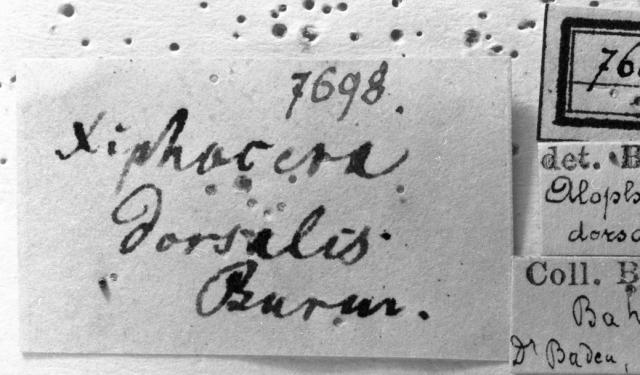 7698.
Xiphocera
dorsalis
Burm.
76
det. B
Aloph
dorsa
Coll. B
Bah
Dr Baden,